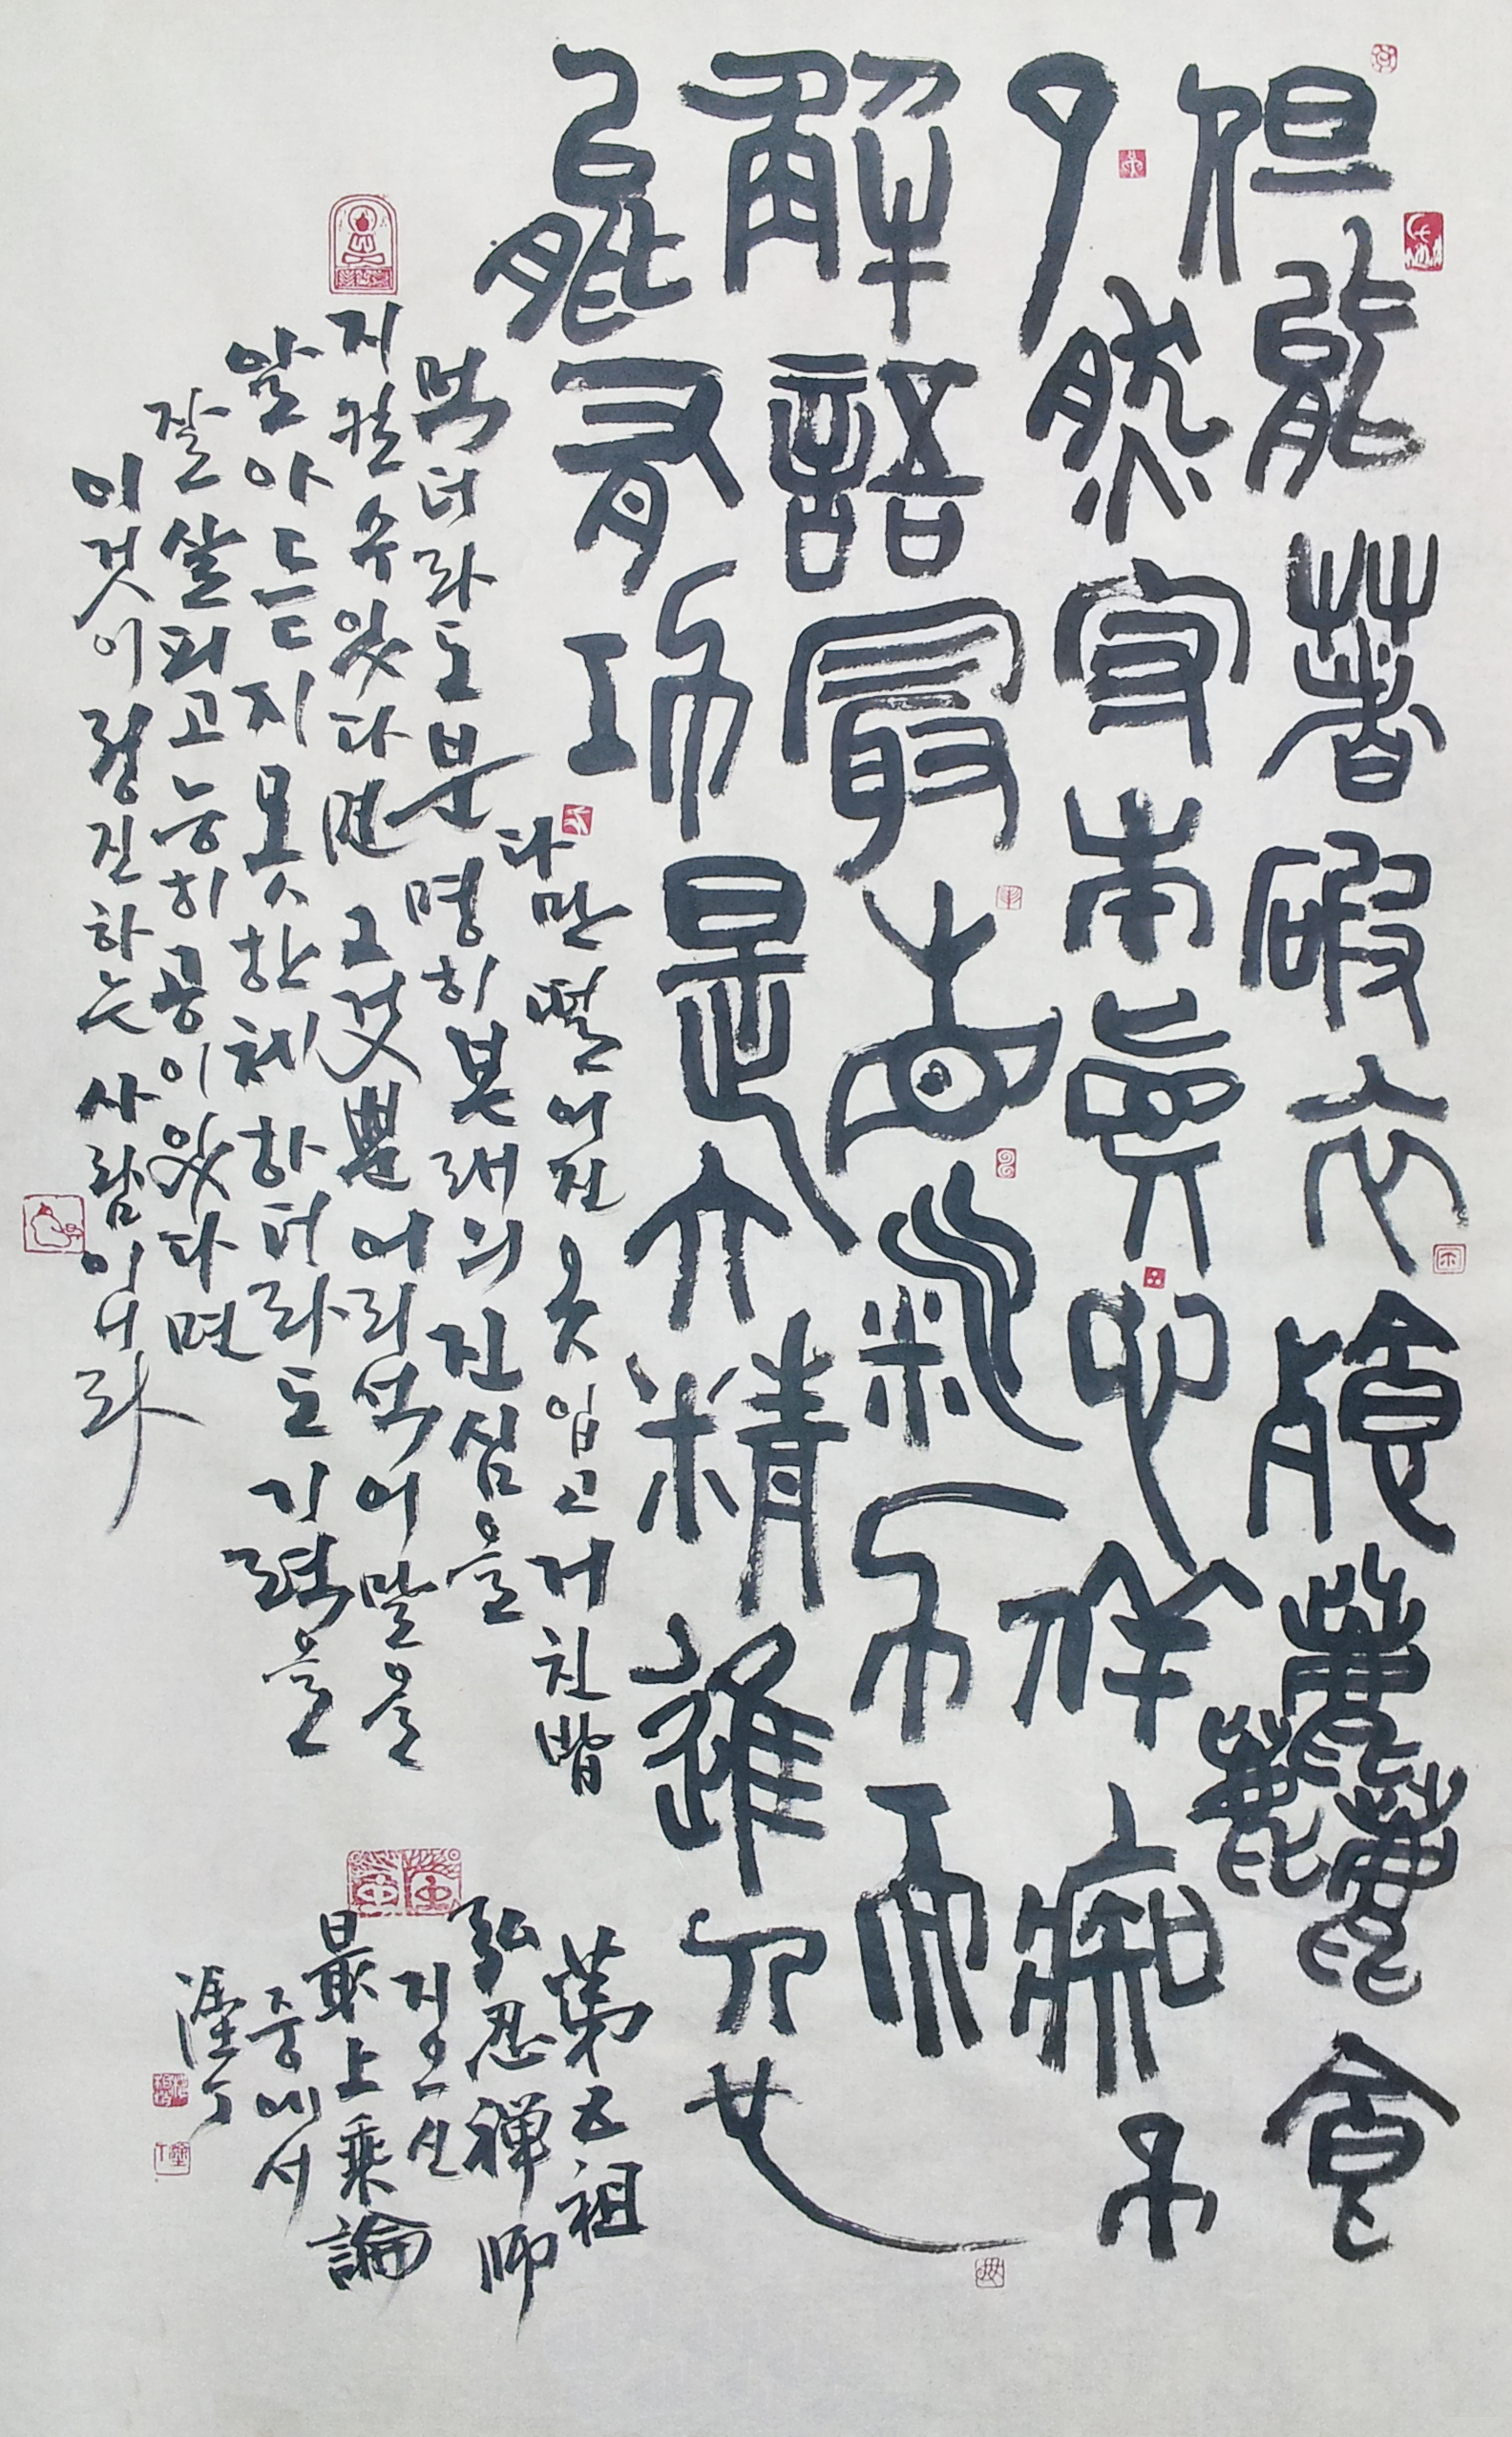 但能著破衣飡麤食
了然守本眞心佯癡不
解語最省氣力而
能有功是大精進人也
다만 떨어진 옷 입고 거친 밥
먹더라도 분명히 본래의 진심을
지킬 수 있다면 그것뿐 어리석어 말을
알아듣지 못한 체하더라도 기력을
잘 살피고 능히 공이 있다면
이것이 정진하는 사람이니라
第五祖
弘忍禅師
지으신
最上乘論
중에서